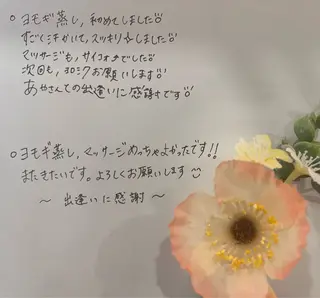 ○ ヨモギ蒸し、初めてしました
すごく汗かいて、スッキリしました
マッサージも、サイコーでした
次回も、お願いします
あやさんとの出逢いに感謝です
○ ヨモギ蒸し、マッサージめっちゃよかったです!!
またきたいです。よろしくお願いします
〜 出逢いに感謝 〜